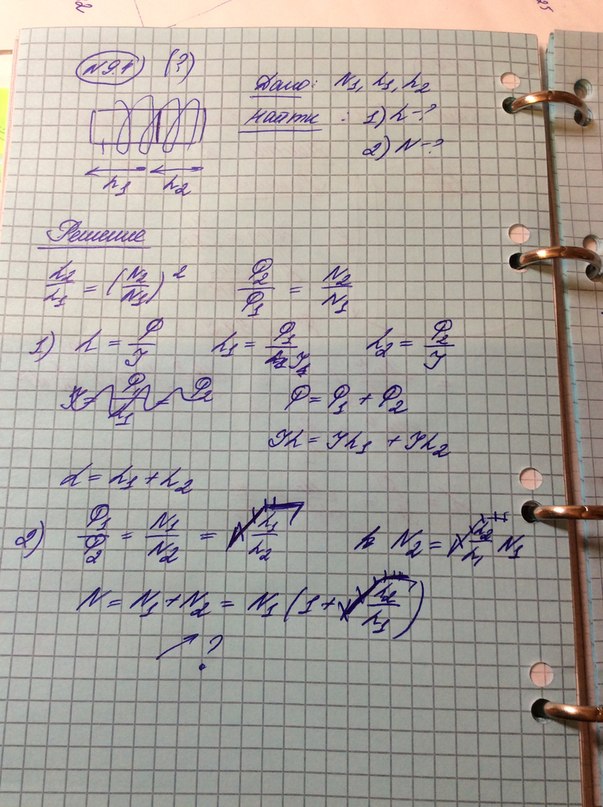 N9.1 (?)
Дано: N₁, L₁, L₂
Найти: 1) L-?
2) N-?
L₁ L₂
Решение
L₂/L₁ = (N₂/N₁)² Ф₂/Ф₁ = N₂/N₁
1) L = Ф/I L₁ = Ф₁/I₁ L₂ = Ф₂/I
Ф = Ф₁ + Ф₂
IL = IL₁ + IL₂
L = L₁ + L₂
2) Ф₁/Ф₂ = N₁/N₂ = L₁/L₂ N₂ = L₂/L₁ N₁
N = N₁ + N₂ = N₁ (1 + L₂/L₁)
?